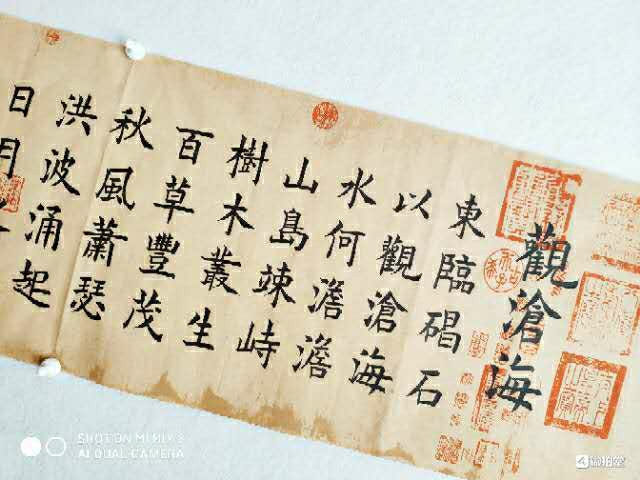 觀滄海
東臨碣石
以觀滄海
水何澹澹
山島竦峙
樹木叢生
百草豐茂
秋風蕭瑟
洪波涌起
日月
SHOT ON MI MIX 3
AI DUAL CAMERA
微拍堂